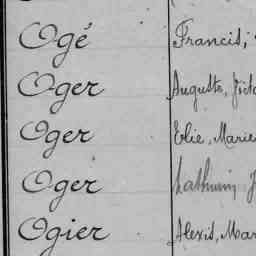 Ogé Francis,
Oger Auguste,
Oger Elie, Marie
Oger Mathurin
Ogier Alexis, Mar